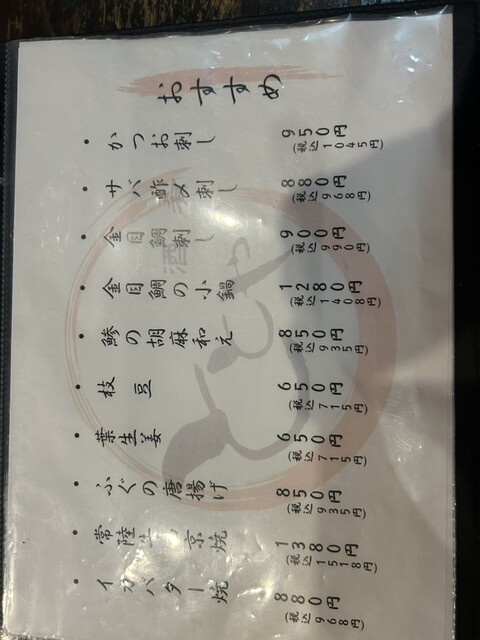 おすすめ
・かつお刺し 950円
(税込1045円)
・サバ酢〆刺し 880円
(税込968円)
・金目鯛刺し 900円
(税込990円)
・金目鯛の小鍋 1280円
(税込1408円)
・鯵の胡麻和え 850円
(税込935円)
・枝豆 650円
(税込715円)
・葉生姜 650円
(税込715円)
・ふぐの唐揚げ 850円
(税込935円)
・常陸牛 京焼 1380円
(税込1518円)
・イカバター焼 880円
(税込968円)